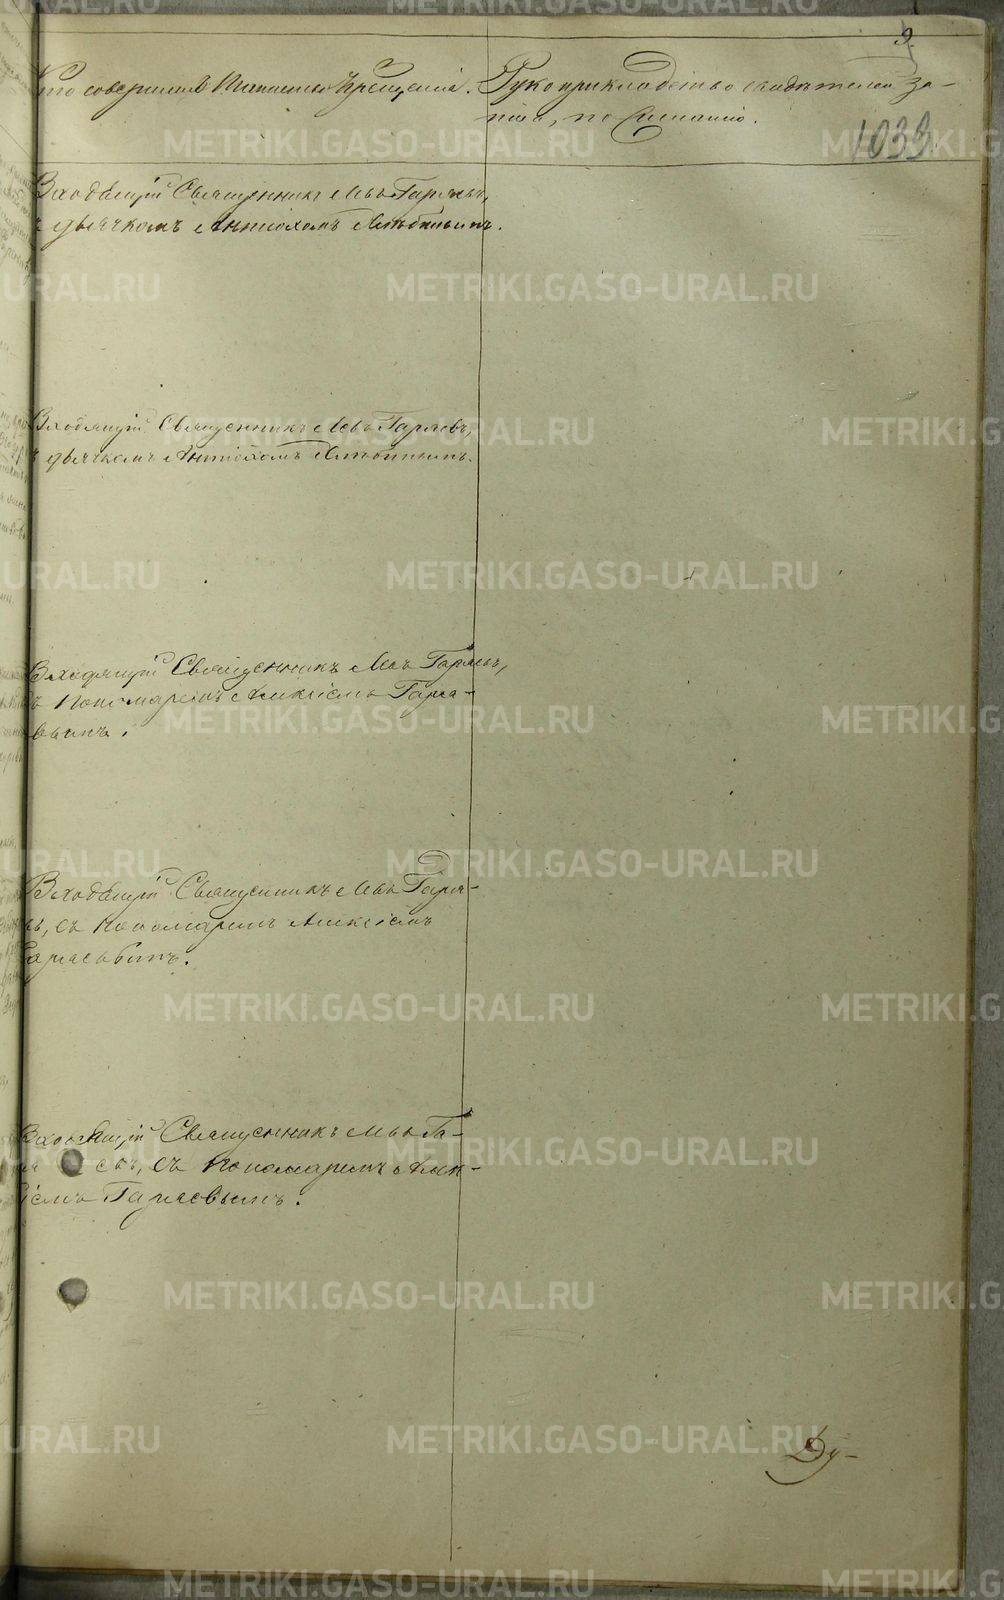 9.
1039.
Кто совершалъ Таинство Крещенія.
Рукоприкладство свидѣтелей за-
писи, по желанію.
Входящій Священникъ Левъ Гаряевъ,
съ дьячкомъ Антіохомъ
Входящій Священникъ Левъ Гаряевъ,
съ дьячкомъ Антіохомъ
Входящій Священникъ Левъ Гаряевъ,
съ Пономаремъ Алексіемъ Гаряе-
вымъ.
Входящій Священникъ Левъ Гаря-
евъ, съ Пономаремъ Алексіемъ
Гаряевымъ.
Входящій Священникъ Левъ Га-
ряевъ, съ Пономаремъ Алек-
сіемъ Гаряевымъ.
Ду-
METRIKI.GASO-URAL.RU